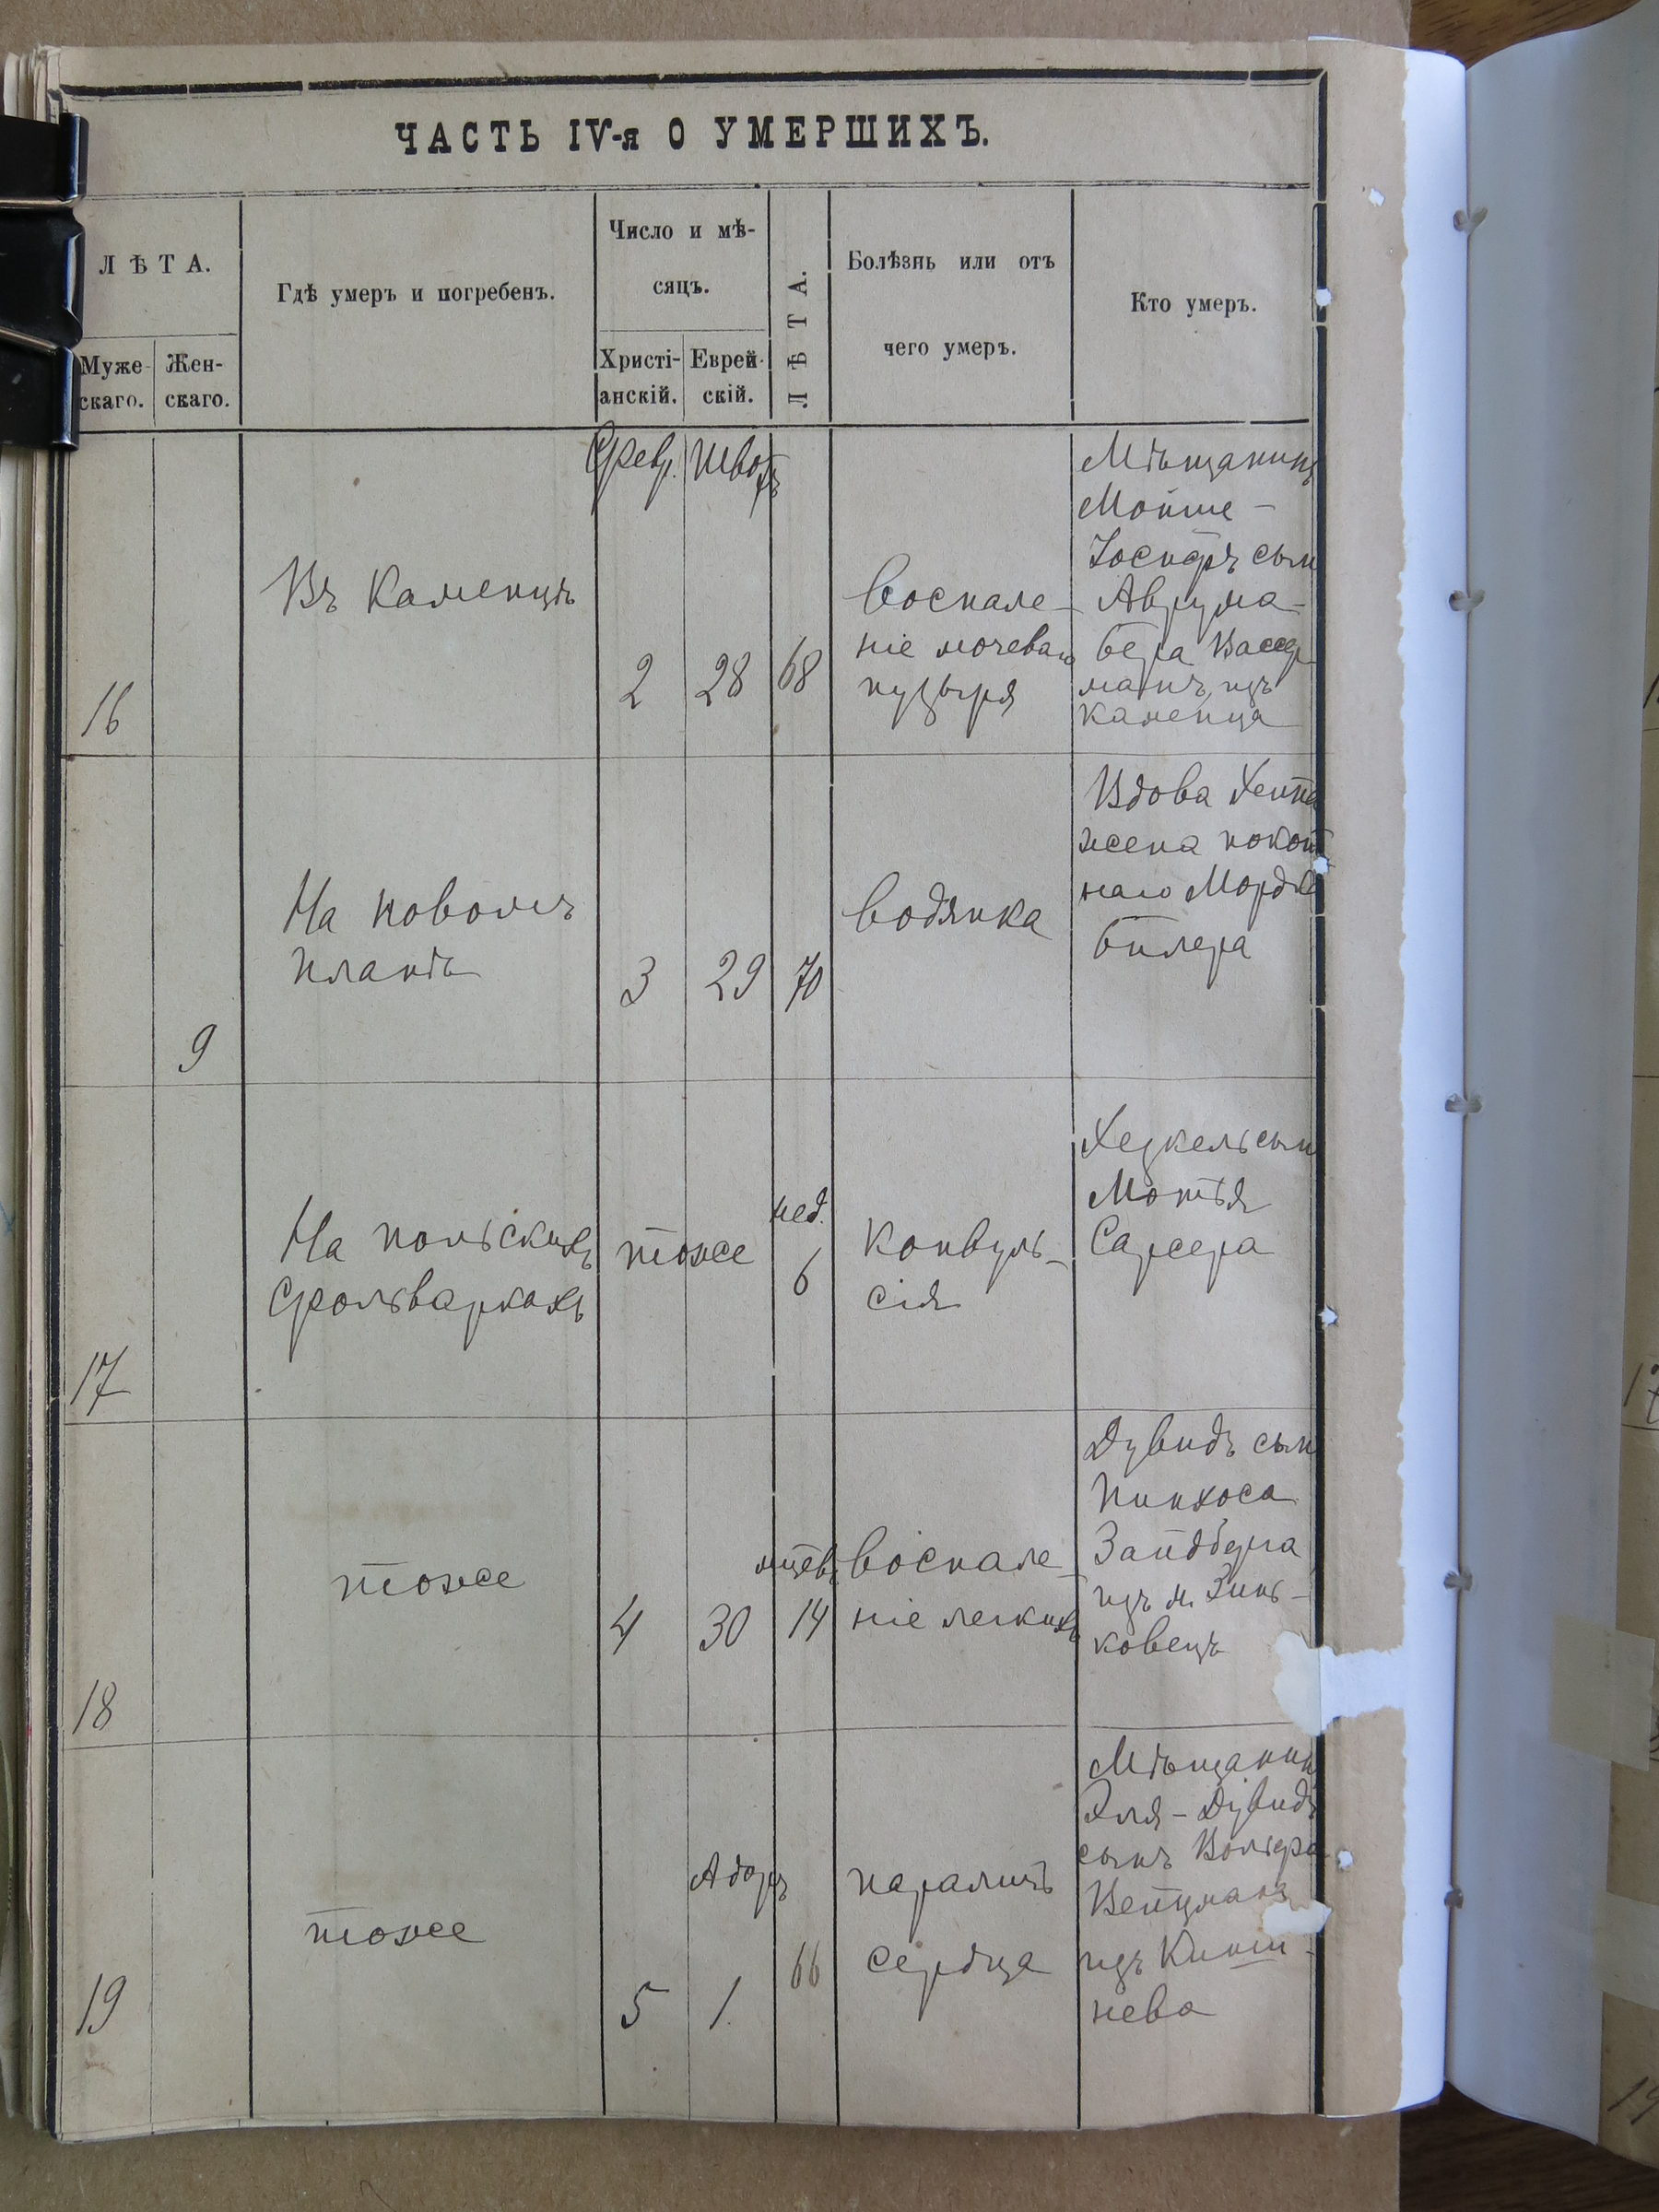 ЧАСТЬ IV-я О УМЕРШИХЪ.
ЛѢТА.
Муже-
скаго.
Жен-
скаго.
Гдѣ умеръ и погребенъ.
Число и мѣ-
сяцъ.
Христі-
анскій.
Еврей-
скій.
ЛѢТА.
Болѣзнь или отъ
чего умеръ.
Кто умеръ.
Февр.
Шватъ
16
Въ Каменцѣ
2
28
68
воспале-
ніе мочеваго
пузыря
Мѣщанинъ
Мойше-
Іосифъ сын
Аврума-
бера Вассер
манъ, изъ
Каменца
9
На новомъ
планѣ
3
29
70
водянка
Вдова Хента
жена покой
наго Мордка
билера
17
На польскихъ
фольваркахъ
тоже
нед.
6
Конвуль-
сія
Хезкель сын
Мотья
Сарсера
18
тоже
4
30
мцевъ
14
воспале-
ніе легкихъ
Дувидъ сын
Пинхоса
Зайдберга
изъ м. Зинь-
ковецъ
19
тоже
5
Адаръ
1
66
параличъ
сердца
Мѣщанин
Эля-Дувидъ
сынъ Вольфа
Вейцманъ
изъ Киши-
нева